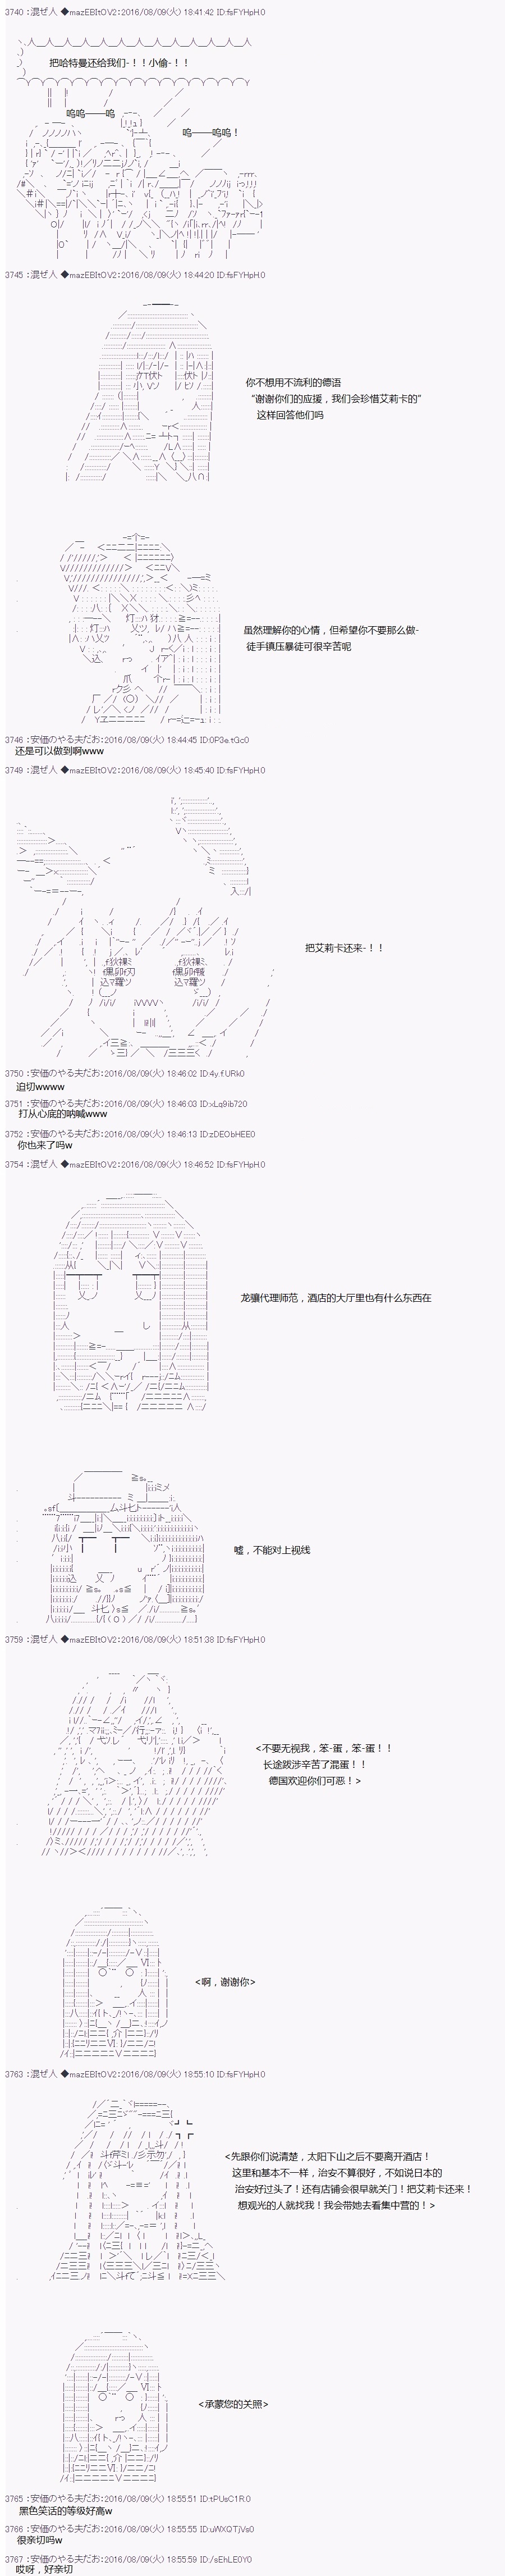 3740 ：混ぜ人 ◆mazEBItOV2：2016/08/09(火) 18:41:42 ID:fsFYHpH.0
把哈特曼还给我们-！！小偷-！！
呜——呜
呜——呜！
3745 ：混ぜ人 ◆mazEBItOV2：2016/08/09(火) 18:44:20 ID:fsFYHpH.0
你不想用不流利的德语
“谢谢你们的应援，我们会珍惜艾莉卡的”
这样回答他们吗
虽然理解你的心情，但希望你不要那么做-
徒手镇压暴徒可很辛苦呢
3746 ：安価のやる夫だお：2016/08/09(火) 18:44:45 ID:0P3e.tGc0
还是可以做到啊www
3749 ：混ぜ人 ◆mazEBItOV2：2016/08/09(火) 18:45:40 ID:fsFYHpH.0
把艾莉卡还来-！！
3750 ：安価のやる夫だお：2016/08/09(火) 18:46:02 ID:4y.f.URk0
迫切wwww
3751 ：安価のやる夫だお：2016/08/09(火) 18:46:03 ID:xLq9ib720
打从心底的呐喊www
3752 ：安価のやる夫だお：2016/08/09(火) 18:46:13 ID:zDEObHEE0
你也来了吗w
3754 ：混ぜ人 ◆mazEBItOV2：2016/08/09(火) 18:46:52 ID:fsFYHpH.0
龙骧代理师范，酒店的大厅里也有什么东西在
嘘，不能对上视线
3759 ：混ぜ人 ◆mazEBItOV2：2016/08/09(火) 18:51:38 ID:fsFYHpH.0
<不要无视我，笨-蛋，笨-蛋！！
长途跋涉辛苦了混蛋！！
德国欢迎你们可恶！>
<啊，谢谢你>
3763 ：混ぜ人 ◆mazEBItOV2：2016/08/09(火) 18:55:10 ID:fsFYHpH.0
<先跟你们说清楚，太阳下山之后不要离开酒店！
这里和基本不一样，治安不算很好，不如说日本的
治安好过头了！还有店铺会很早就关门！把艾莉卡还来！
想观光的人就找我！我会带她去看集中营的！>
<承蒙您的关照>
3765 ：安価のやる夫だお：2016/08/09(火) 18:55:51 ID:tPUsC1R.0
黑色笑话的等级好高w
3766 ：安価のやる夫だお：2016/08/09(火) 18:55:55 ID:uWXQTjVs0
很亲切吗w
3767 ：安価のやる夫だお：2016/08/09(火) 18:55:59 ID:/sEhLE0Y0
哎呀，好亲切